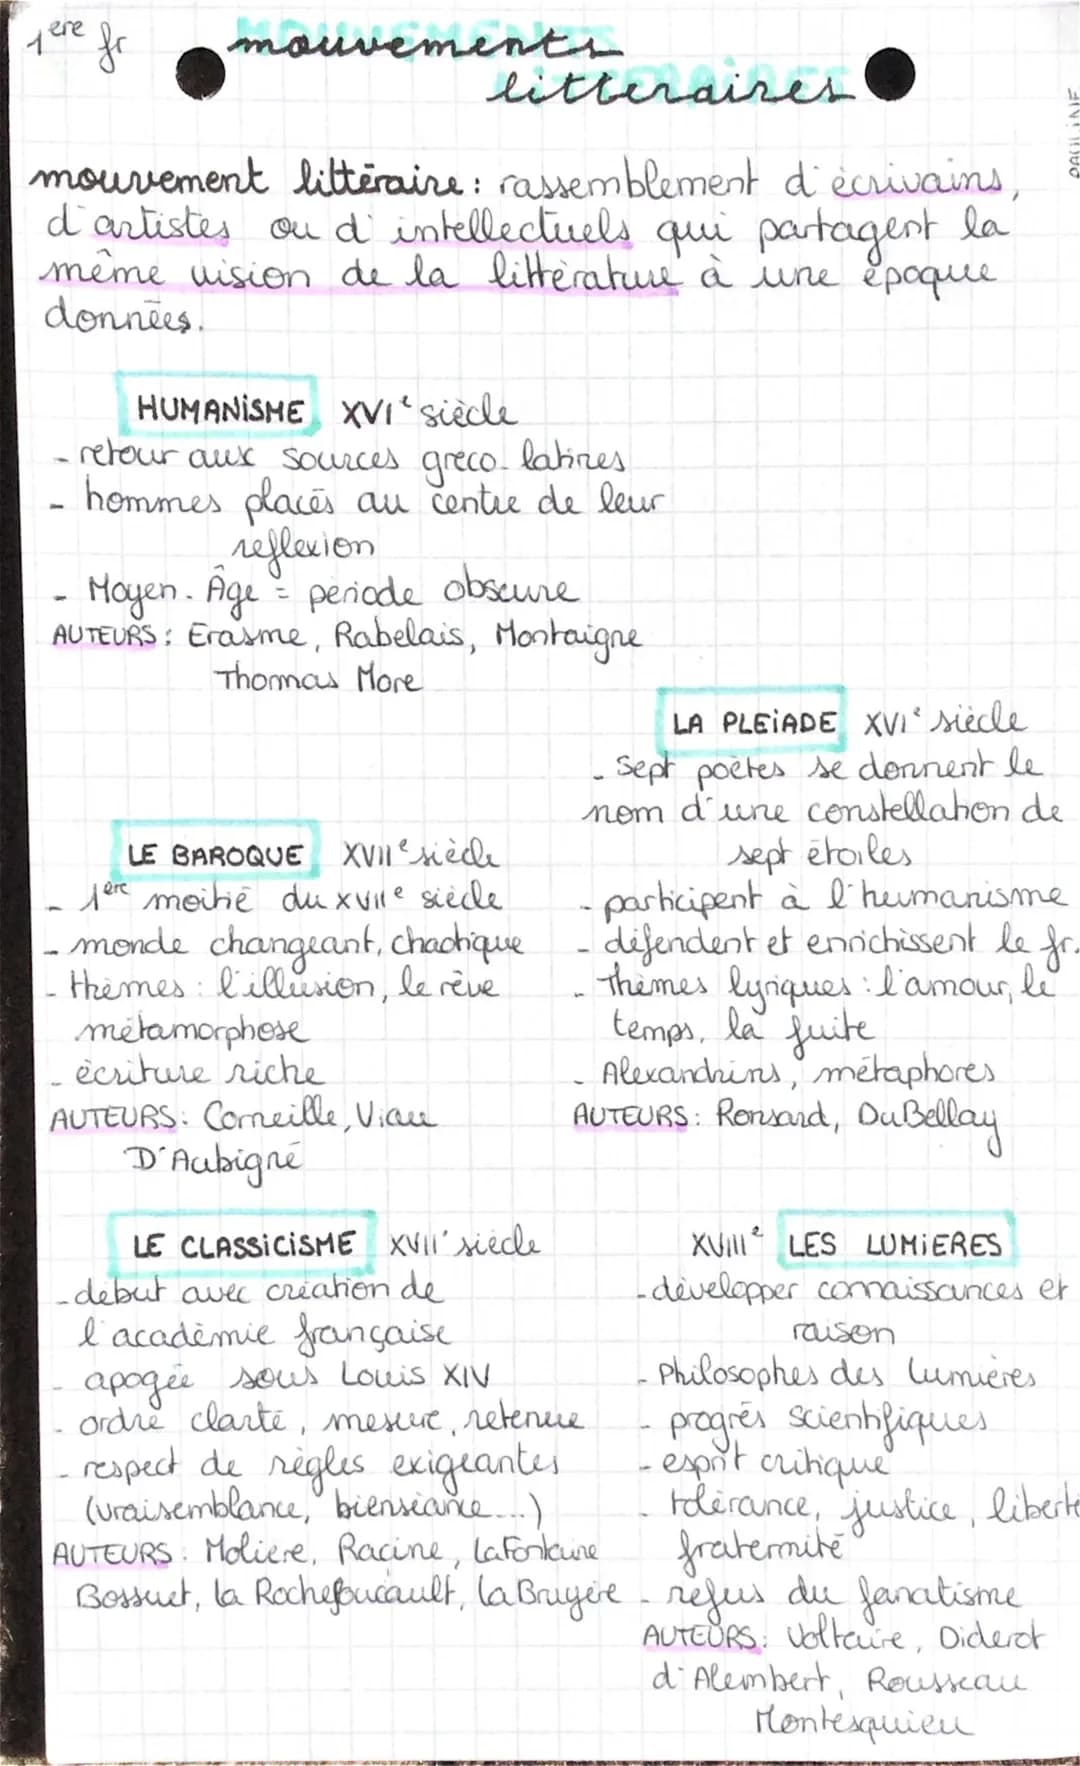 1ère fr
MOUVEMENTS
mouvements
LITTERAIRES
litteraires
PAULINE
mouvement littéraire : rassemblement d'écrivains,
d'artistes ou d'intellectuels qui partagent la
même vision de la littérature à une époque
données.
HUMANISME XVIe siècle
- retour aux sources greco-latines
- hommes placés au centre de leur
reflexion
- Moyen-Âge = période obscure
AUTEURS : Erasme, Rabelais, Montaigne
Thomas More
LA PLEIADE XVIe siècle
- Sept poètes se donnent le
nom d'une constellation de
sept étoiles
- participent à l'humanisme
- défendent et enrichissent le fr.
- Thèmes lyriques : l'amour, le
temps, la fuite
- Alexandrins, métaphores
AUTEURS : Ronsard, Du Bellay
LE BAROQUE XVIIe siècle
- 1ère moitié du XVIIe siècle
- monde changeant, chaotique
- thèmes : l'illusion, le rêve
métamorphose
- écriture riche
AUTEURS : Corneille, Viau
D'Aubigné
LE CLASSICISME XVII' siècle
- début avec création de
l'académie française
- apogée sous Louis XIV
- ordre clarté, mesure, retenue
- respect de règles exigeantes
(vraisemblance, bienséance...)
AUTEURS : Moliere, Racine, La Fontaine
Bossuet, la Rochefoucault, la Bruyère
XVIIIe LES LUMIERES
- développer connaissances et
raison
- Philosophes des lumières
- progrés scientifiques
- esprit critique
- tolérance, justice, liberté
fraternité
- refus du fanatisme
AUTEURS : Voltaire, Diderot
d'Alembert, Rousseau
Montesquieu